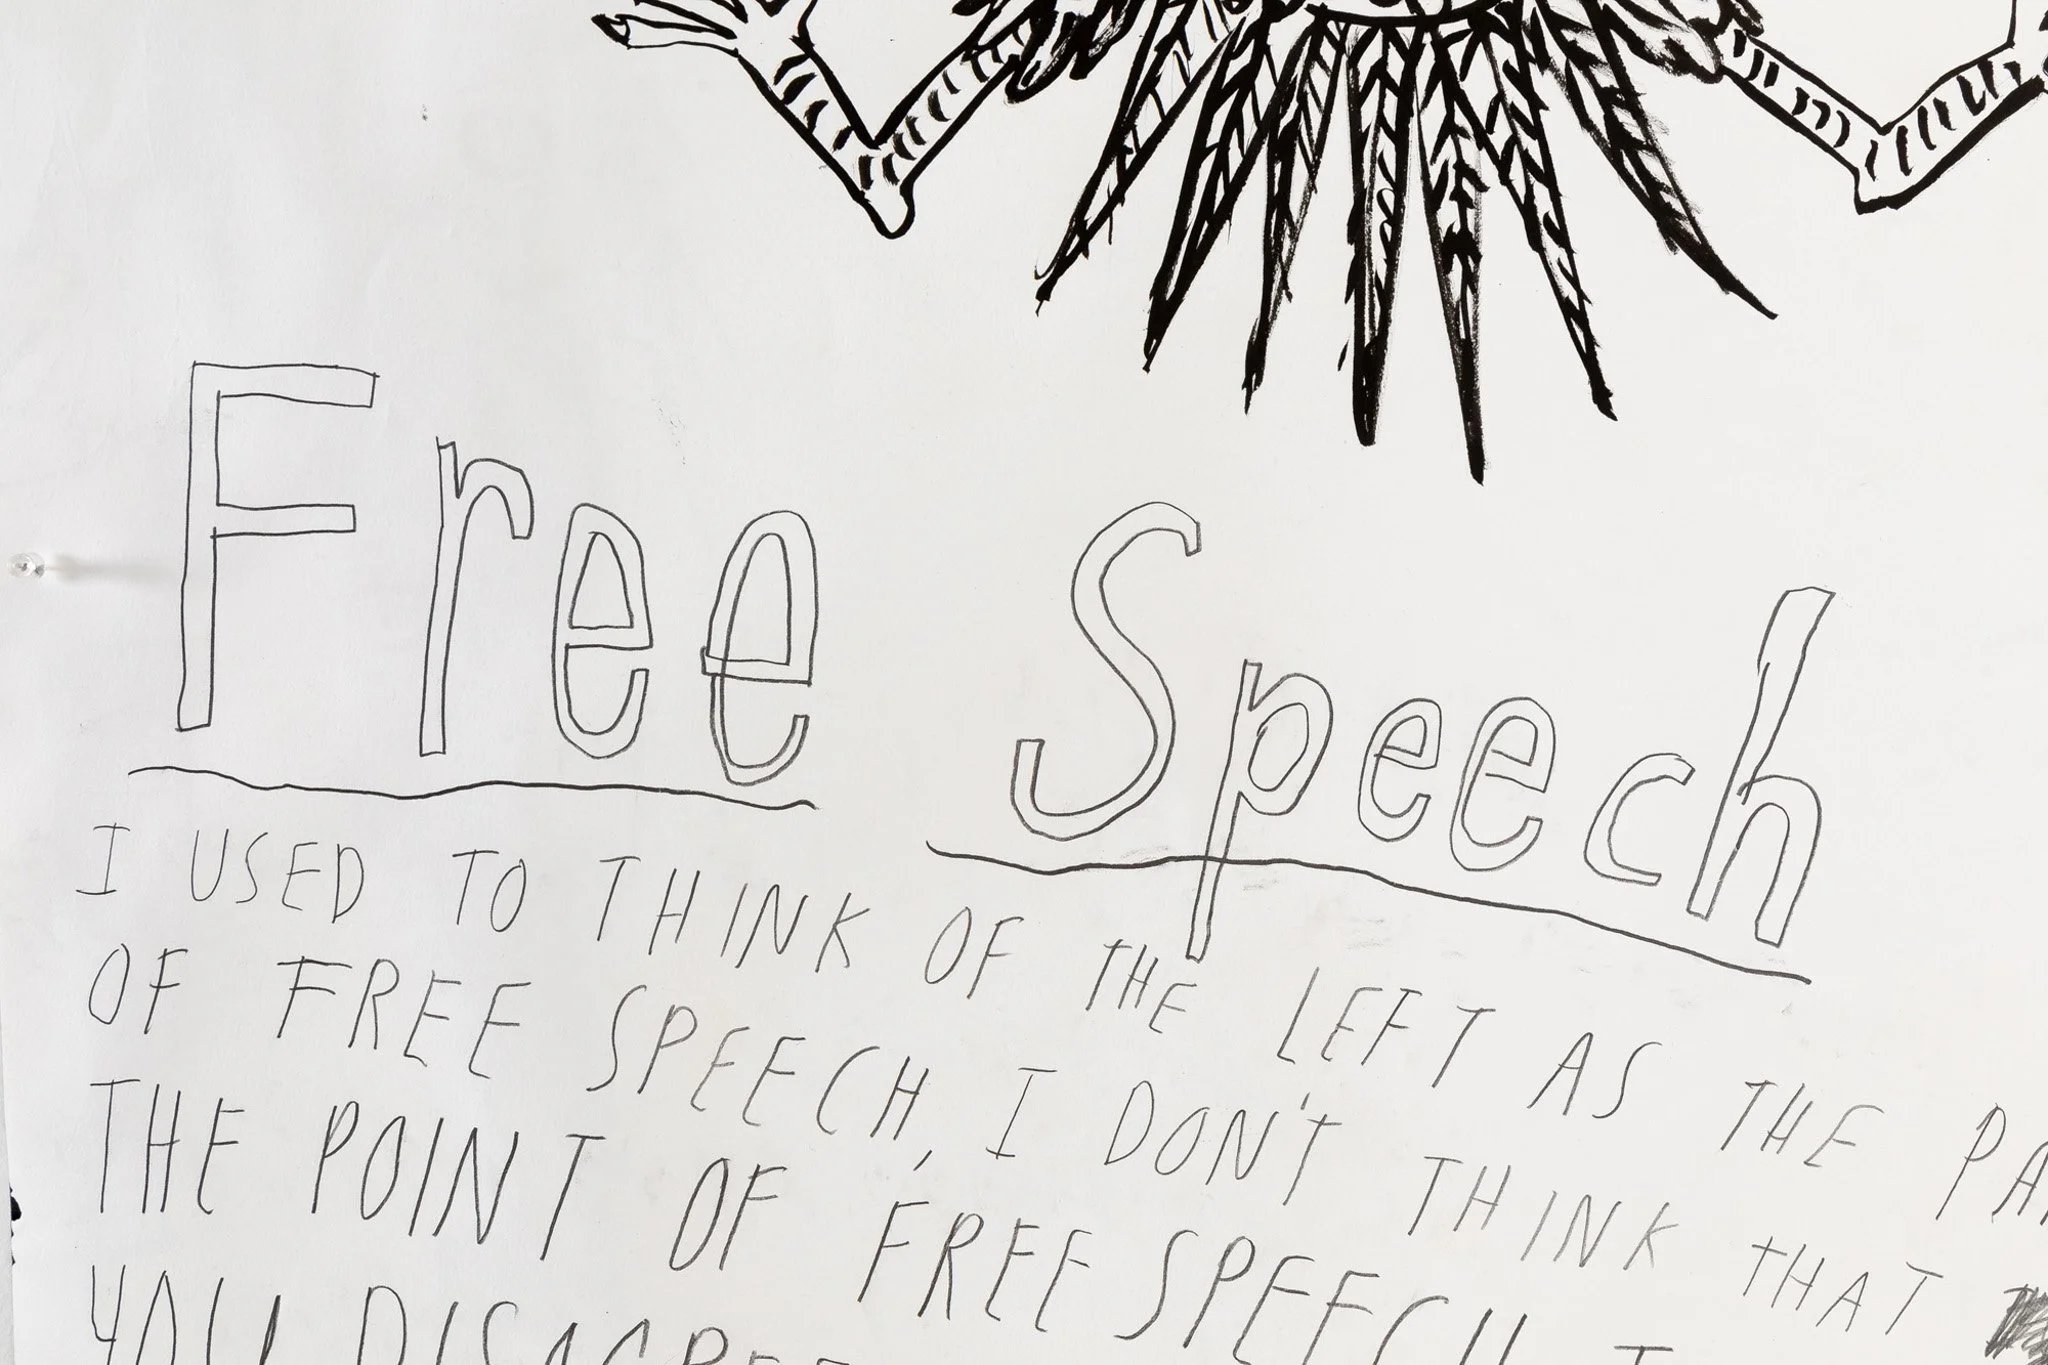 Free Speech
I USED TO THINK OF THE LEFT AS THE
OF FREE SPEECH, I DON'T THINK THAT
THE POINT OF FREE SPEECH
YOU